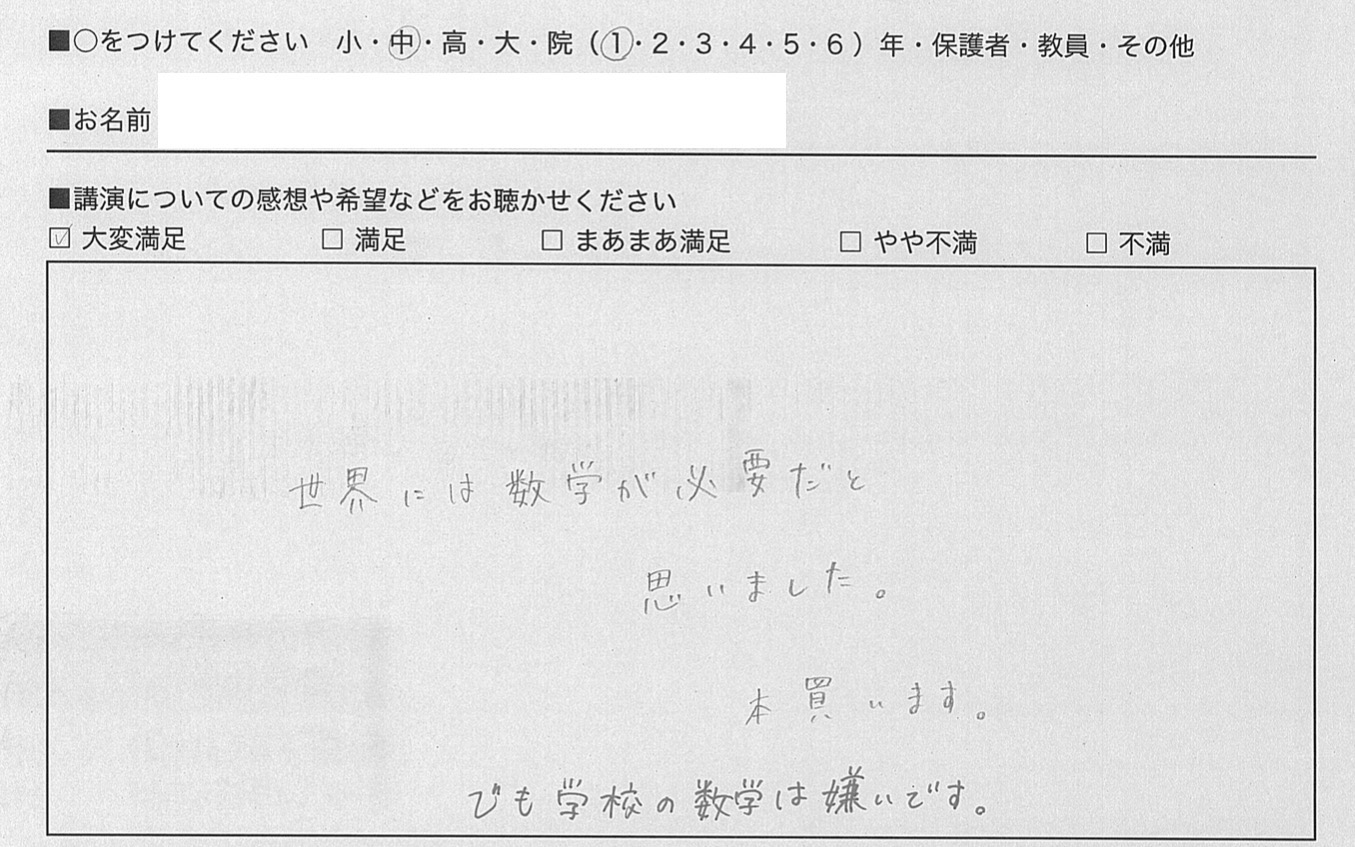 ■○をつけてください 小・中・高・大・院（1・2・3・4・5・6）年・保護者・教員・その他
■お名前
■講演についての感想や希望などをお聴かせください
☑ 大変満足 □ 満足 □ まあまあ満足 □ やや不満 □ 不満
世界には数学が必要だと
思いました。
本買います。
でも学校の数学は嫌いです。